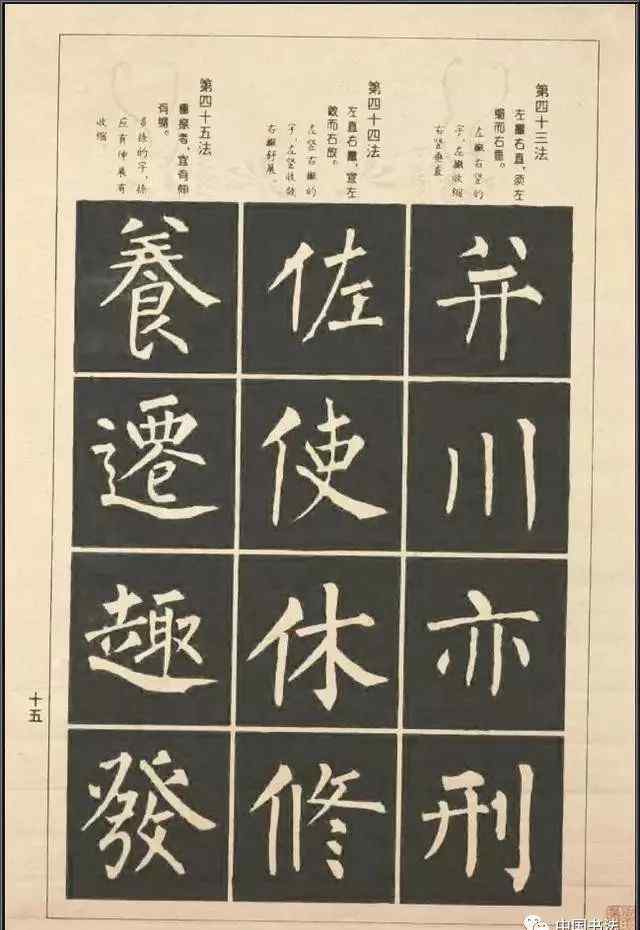 第四十三法
左撇右直,须左
缩而右垂。
左撇右竖的
字,左撇收缩
右竖垂直
并
川
亦
刑
第四十四法
左直右撇,宜左
敛而右放。
左竖右撇的
字,左竖收敛
右撇舒展。
佐
使
休
修
第四十五法
重捺者,宜有伸
有缩。
多捺的字,捺
应有伸展有
收缩
養
遷
趣
發
十五
中国书法